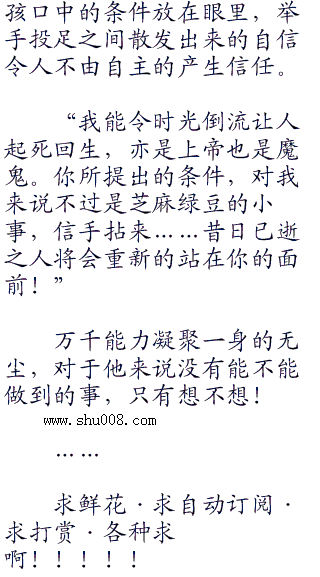 孩口中的条件放在眼里，举
手投足之间散发出来的自信
令人不由自主的产生信任。
“我能令时光倒流让人
起死回生，亦是上帝也是魔
鬼。你所提出的条件，对我
来说不过是芝麻绿豆的小
事，信手拈来……昔日已逝
之人将会重新的站在你的面
前！”
万千能力凝聚一身的无
尘，对于他来说没有能不能
做到的事，只有想不想！
www.shu008.com
……
求鲜花·求自动订阅·
求打赏·各种求
啊！！！！！